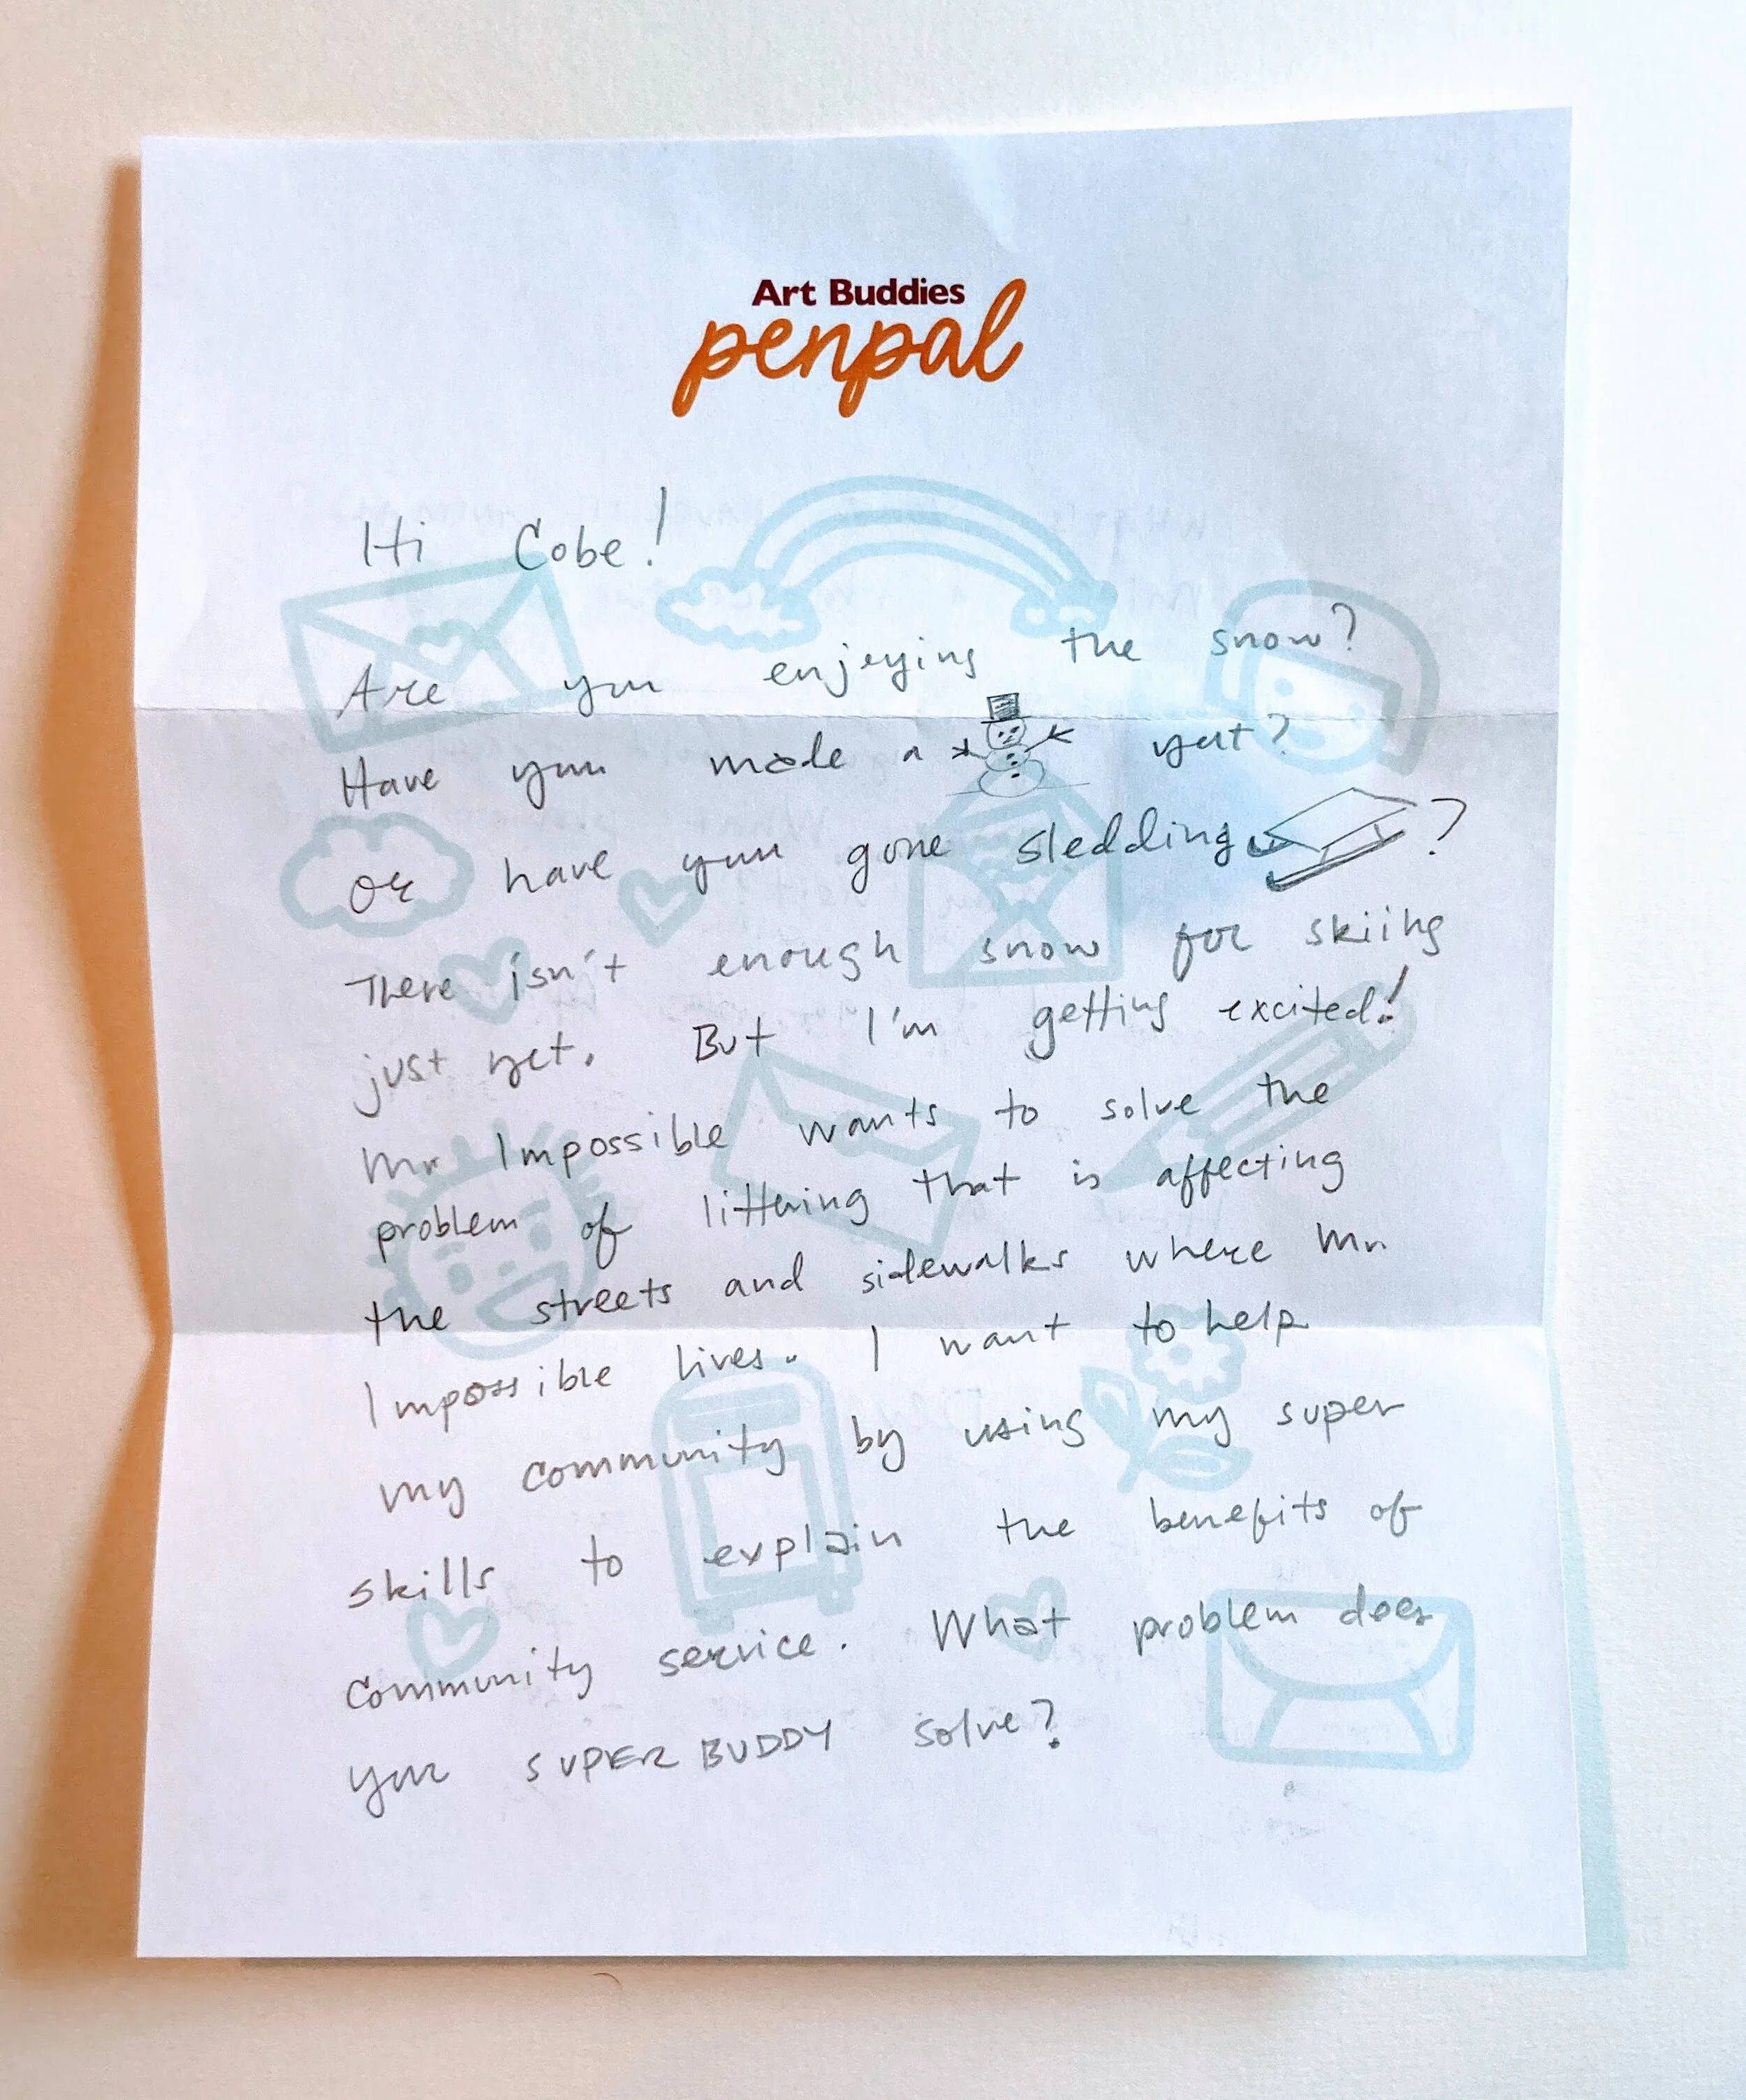 Art Buddies
penpal
Hi Cobe!
Are you enjoying the snow?
Have you made a yet?
or have you gone sledding ?
There isn't enough snow for skiing
just yet. But I'm getting excited!
Mr Impossible wants to solve the
problem of littering that is affecting
the streets and sidewalks where Mr
Impossible lives. I want to help
my community by using my super
skills to explain the benefits of
community service. What problem does
your SUPER BUDDY solve?